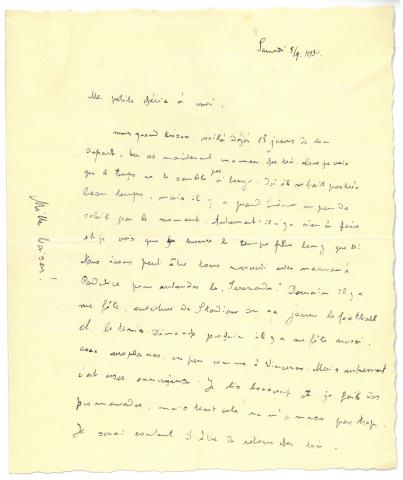 Samedi 5/9. 1931.
Ma petite chérie à moi,
mon grand trésor. voilà déjà 15 jours de ton
départ, tu as maintenant maman chez toi. alors je vois
que le temps ne te semble pas long. Ici il ne fait pas très
beau temps, mais il y a quand même un peu de
soleil par le moment. Autrement il n'y a rien à faire
et je vois que le temps plus long que toi
Nous irons peut être tous mercredi avec maman à
pour entendre la Serenade! Demain il y a
une fête, ouverture du Stadium on va jouer le football
et le tennis. Dimanche prochain il y a une fête aussi,
avec aeroplanes, un peu comme à Vincennes. Mais autrement
c'est assez ennuyeux. Je lis beaucoup et je fais des
promenades, mais tout cela ne m'amuse pas trop.
Je serai content d'être de retour chez toi.
Mille baisers!